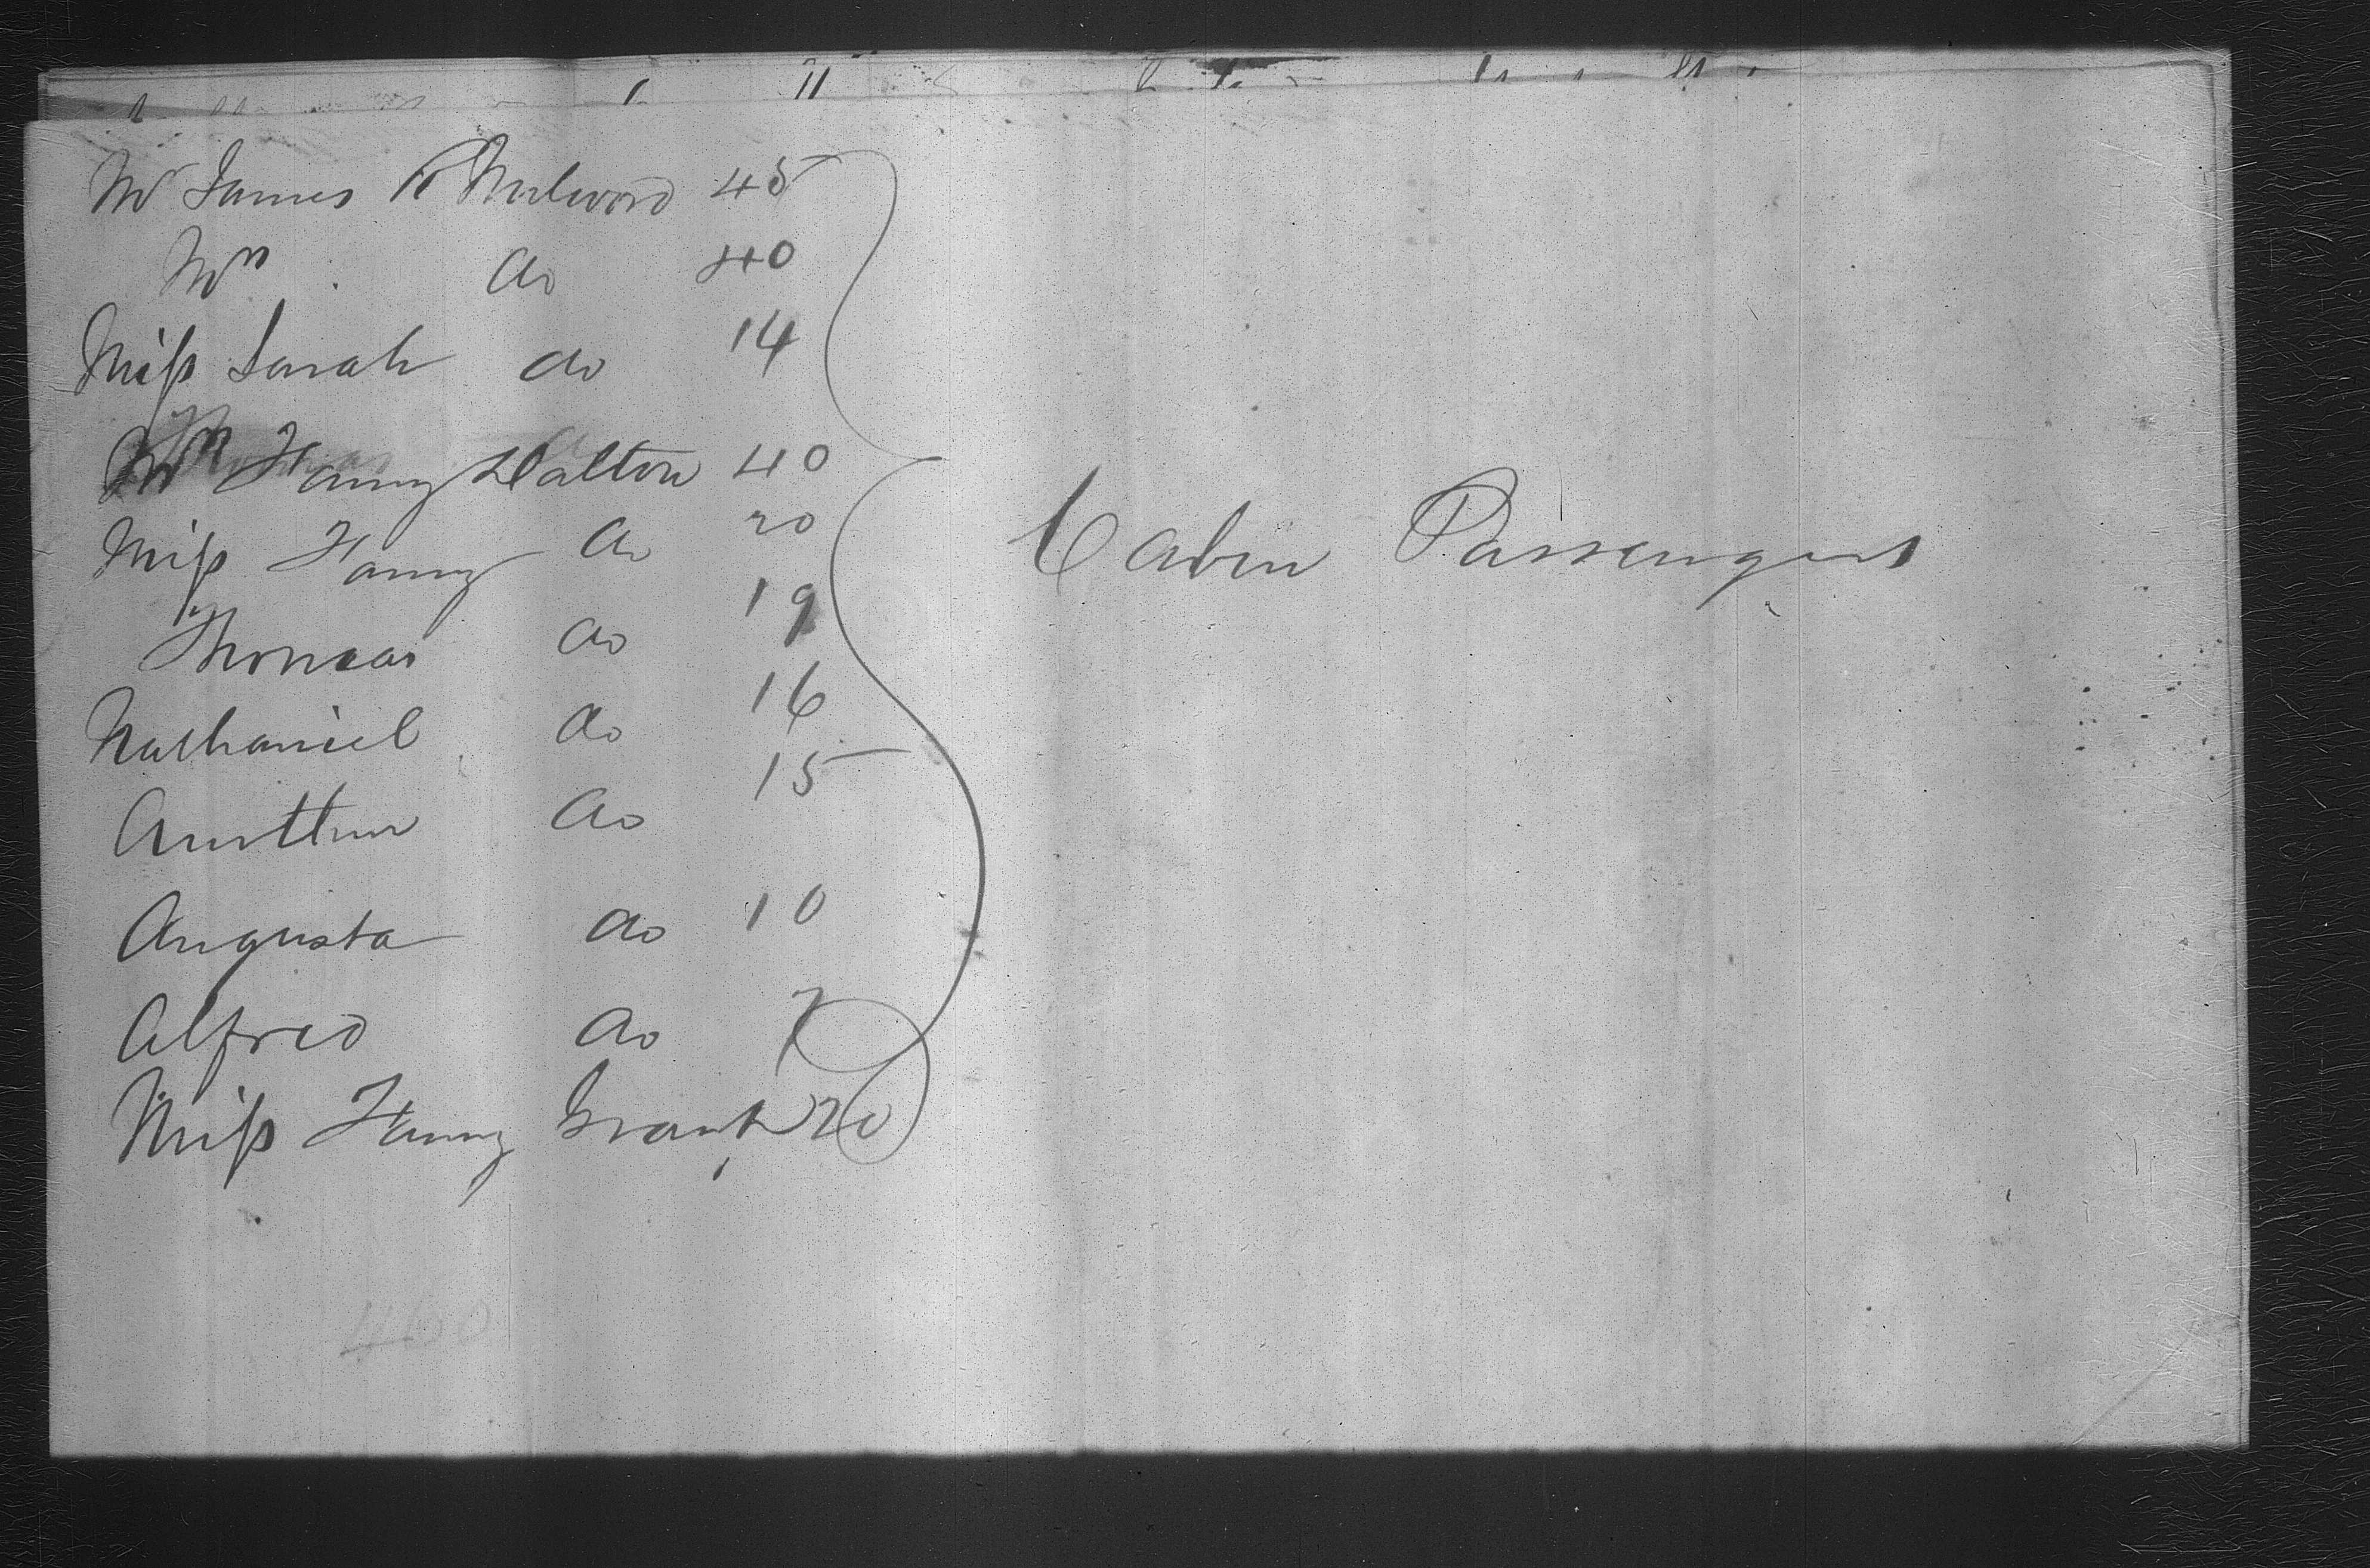 Mr James R Milword 45
Mrs do 40
Miss Sarah do 14
Mrs Fanny Dalton 40
Miss Fanny do 20
Thomas do 19
Nathaniel do 16
do 15
Augusta do 10
Alfred do 7
Miss Fanny Grant 20
Cabin Passengers
460